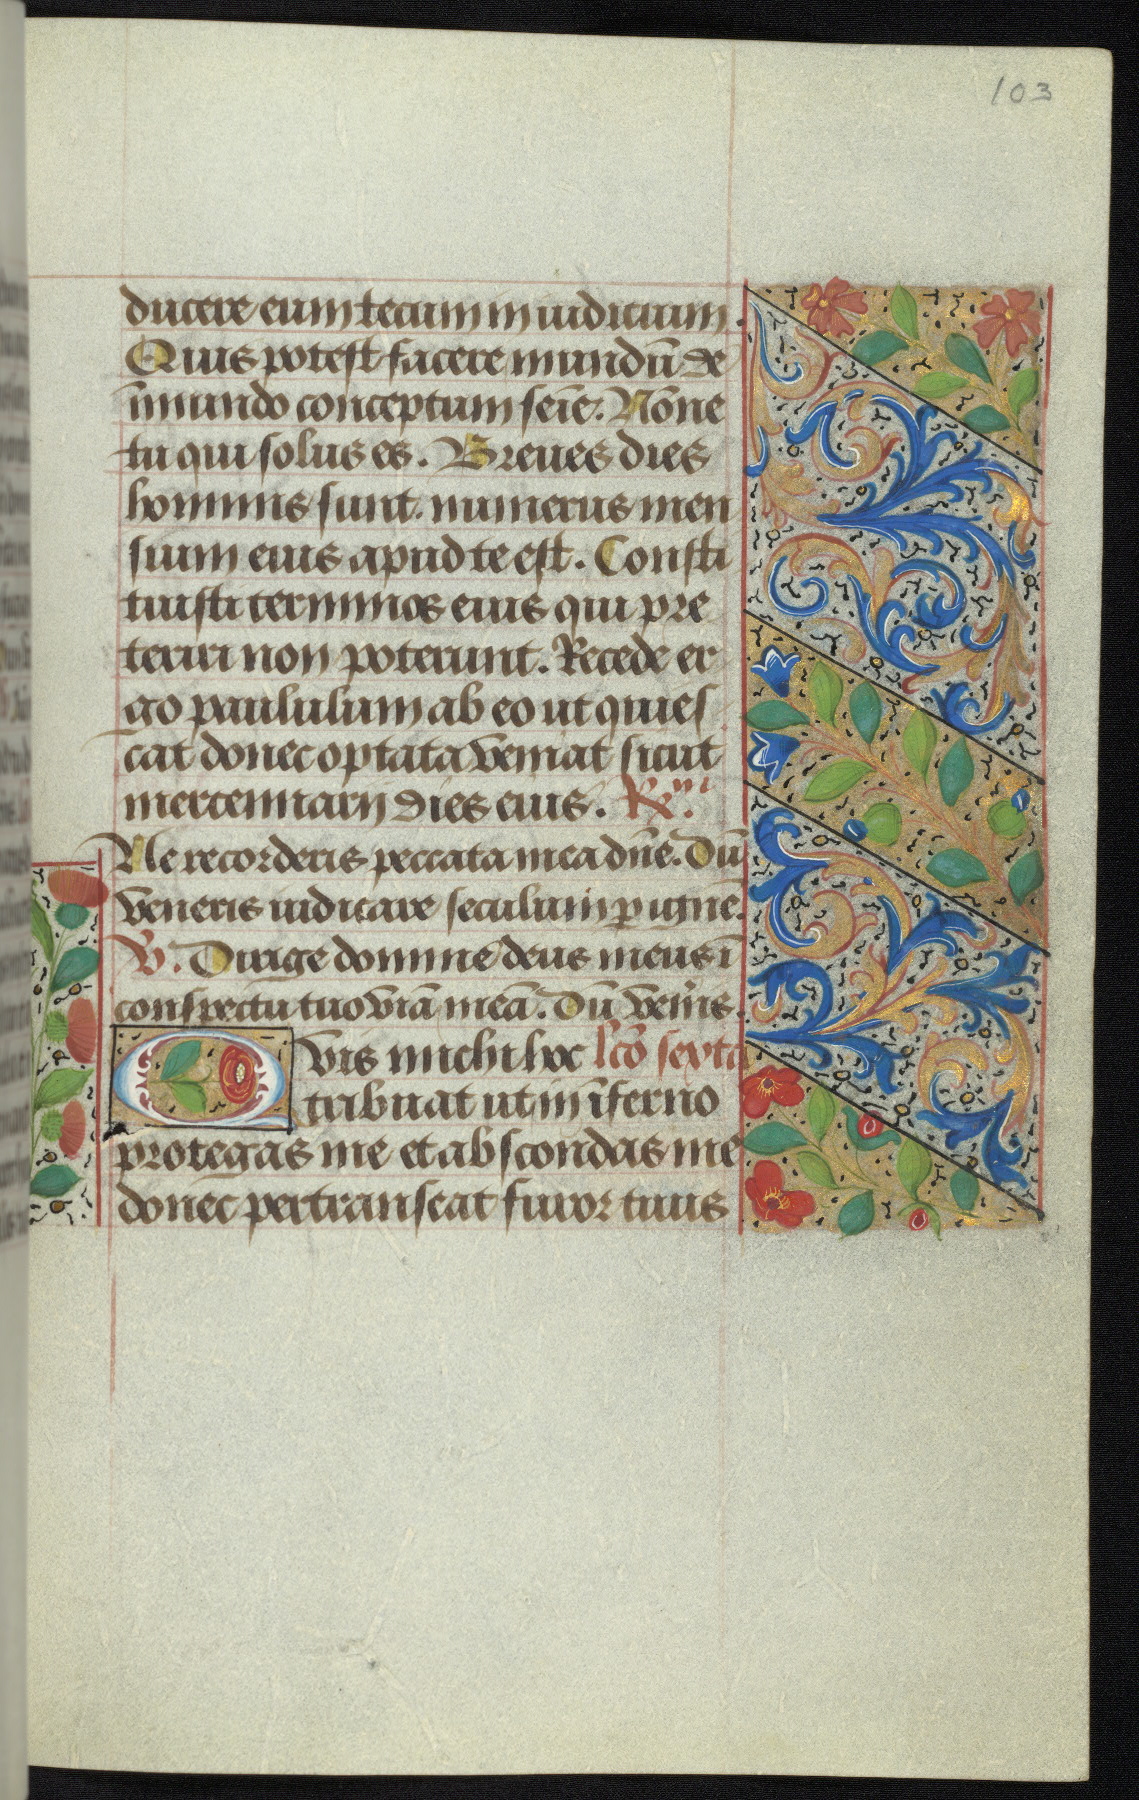 103
ducere eum tecum in iudicium.
Quis potest facere mundū de
īmundo conceptum seīe. Nōne
tu qui solus es. Breues dies
hominis sunt. numerus men
sium eius apud te est. Consti
tuisti terminos eius qui pre
teriri non poterunt. Recede er
go paululum ab eo ut quies
cat donec optata veniat sicut
mercennarij dies eius. Rx.
Ne recorderis peccata mea dn̄e. Dū
veneris iudicare seculum p ignē.
V. Dirige domine deus meus ī
conspectu tuo viā meā. Dū ven̄is.
Qvis michi hoc lc̄o sexta
tribuat ut in īferno
protegas me et abscondas me
donec pertranseat furor tuus